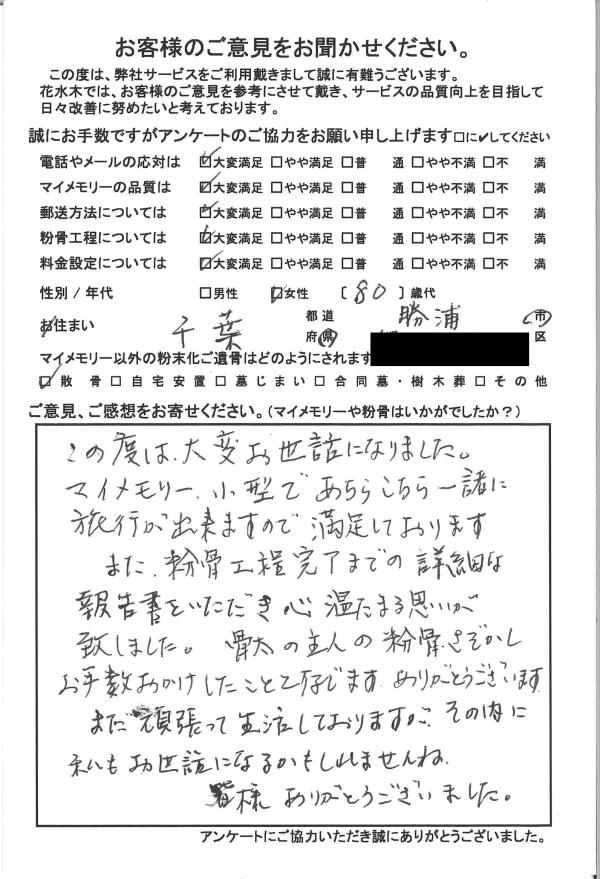 お客様のご意見をお聞かせください。
この度は、弊社サービスをご利用戴きまして誠に有難うございます。
花水木では、お客様のご意見を参考にさせて戴き、サービスの品質向上を目指して
日々改善に努めたいと考えております。
誠にお手数ですがアンケートのご協力をお願い申し上げます□に✓してください
電話やメールの応対は ☑大変満足 □やや満足 □普 通 □やや不満 □不 満
マイメモリーの品質は ☑大変満足 □やや満足 □普 通 □やや不満 □不 満
郵送方法については ☑大変満足 □やや満足 □普 通 □やや不満 □不 満
粉骨工程については ☑大変満足 □やや満足 □普 通 □やや不満 □不 満
料金設定については ☑大変満足 □やや満足 □普 通 □やや不満 □不 満
性別 / 年代 □男性 ☑女性 〔 80 〕歳代
お住まい 千葉 都道府県 勝浦 市区
マイメモリー以外の粉末化ご遺骨はどのようにされます
☑散 骨 □自宅安置 □墓じまい □合同墓・樹木葬 □その他
ご意見、ご感想をお寄せください。(マイメモリーや粉骨はいかがでしたか?)
この度は、大変お世話になりました。
マイメモリー、小型であちらこちら一諸に
旅行が出来ますので満足しております
また、粉骨工程完了までの詳細な
報告書をいただき心温たまる思いが
致しました。骨太の主人の粉骨、さぞかし
お手数おかけしたことと存じます、ありがとうございます
まだ頑張って生活しておりますが、その内に
私もお世話になるかもしれませんね、
皆様ありがとうございました。
アンケートにご協力いただき誠にありがとうございました。